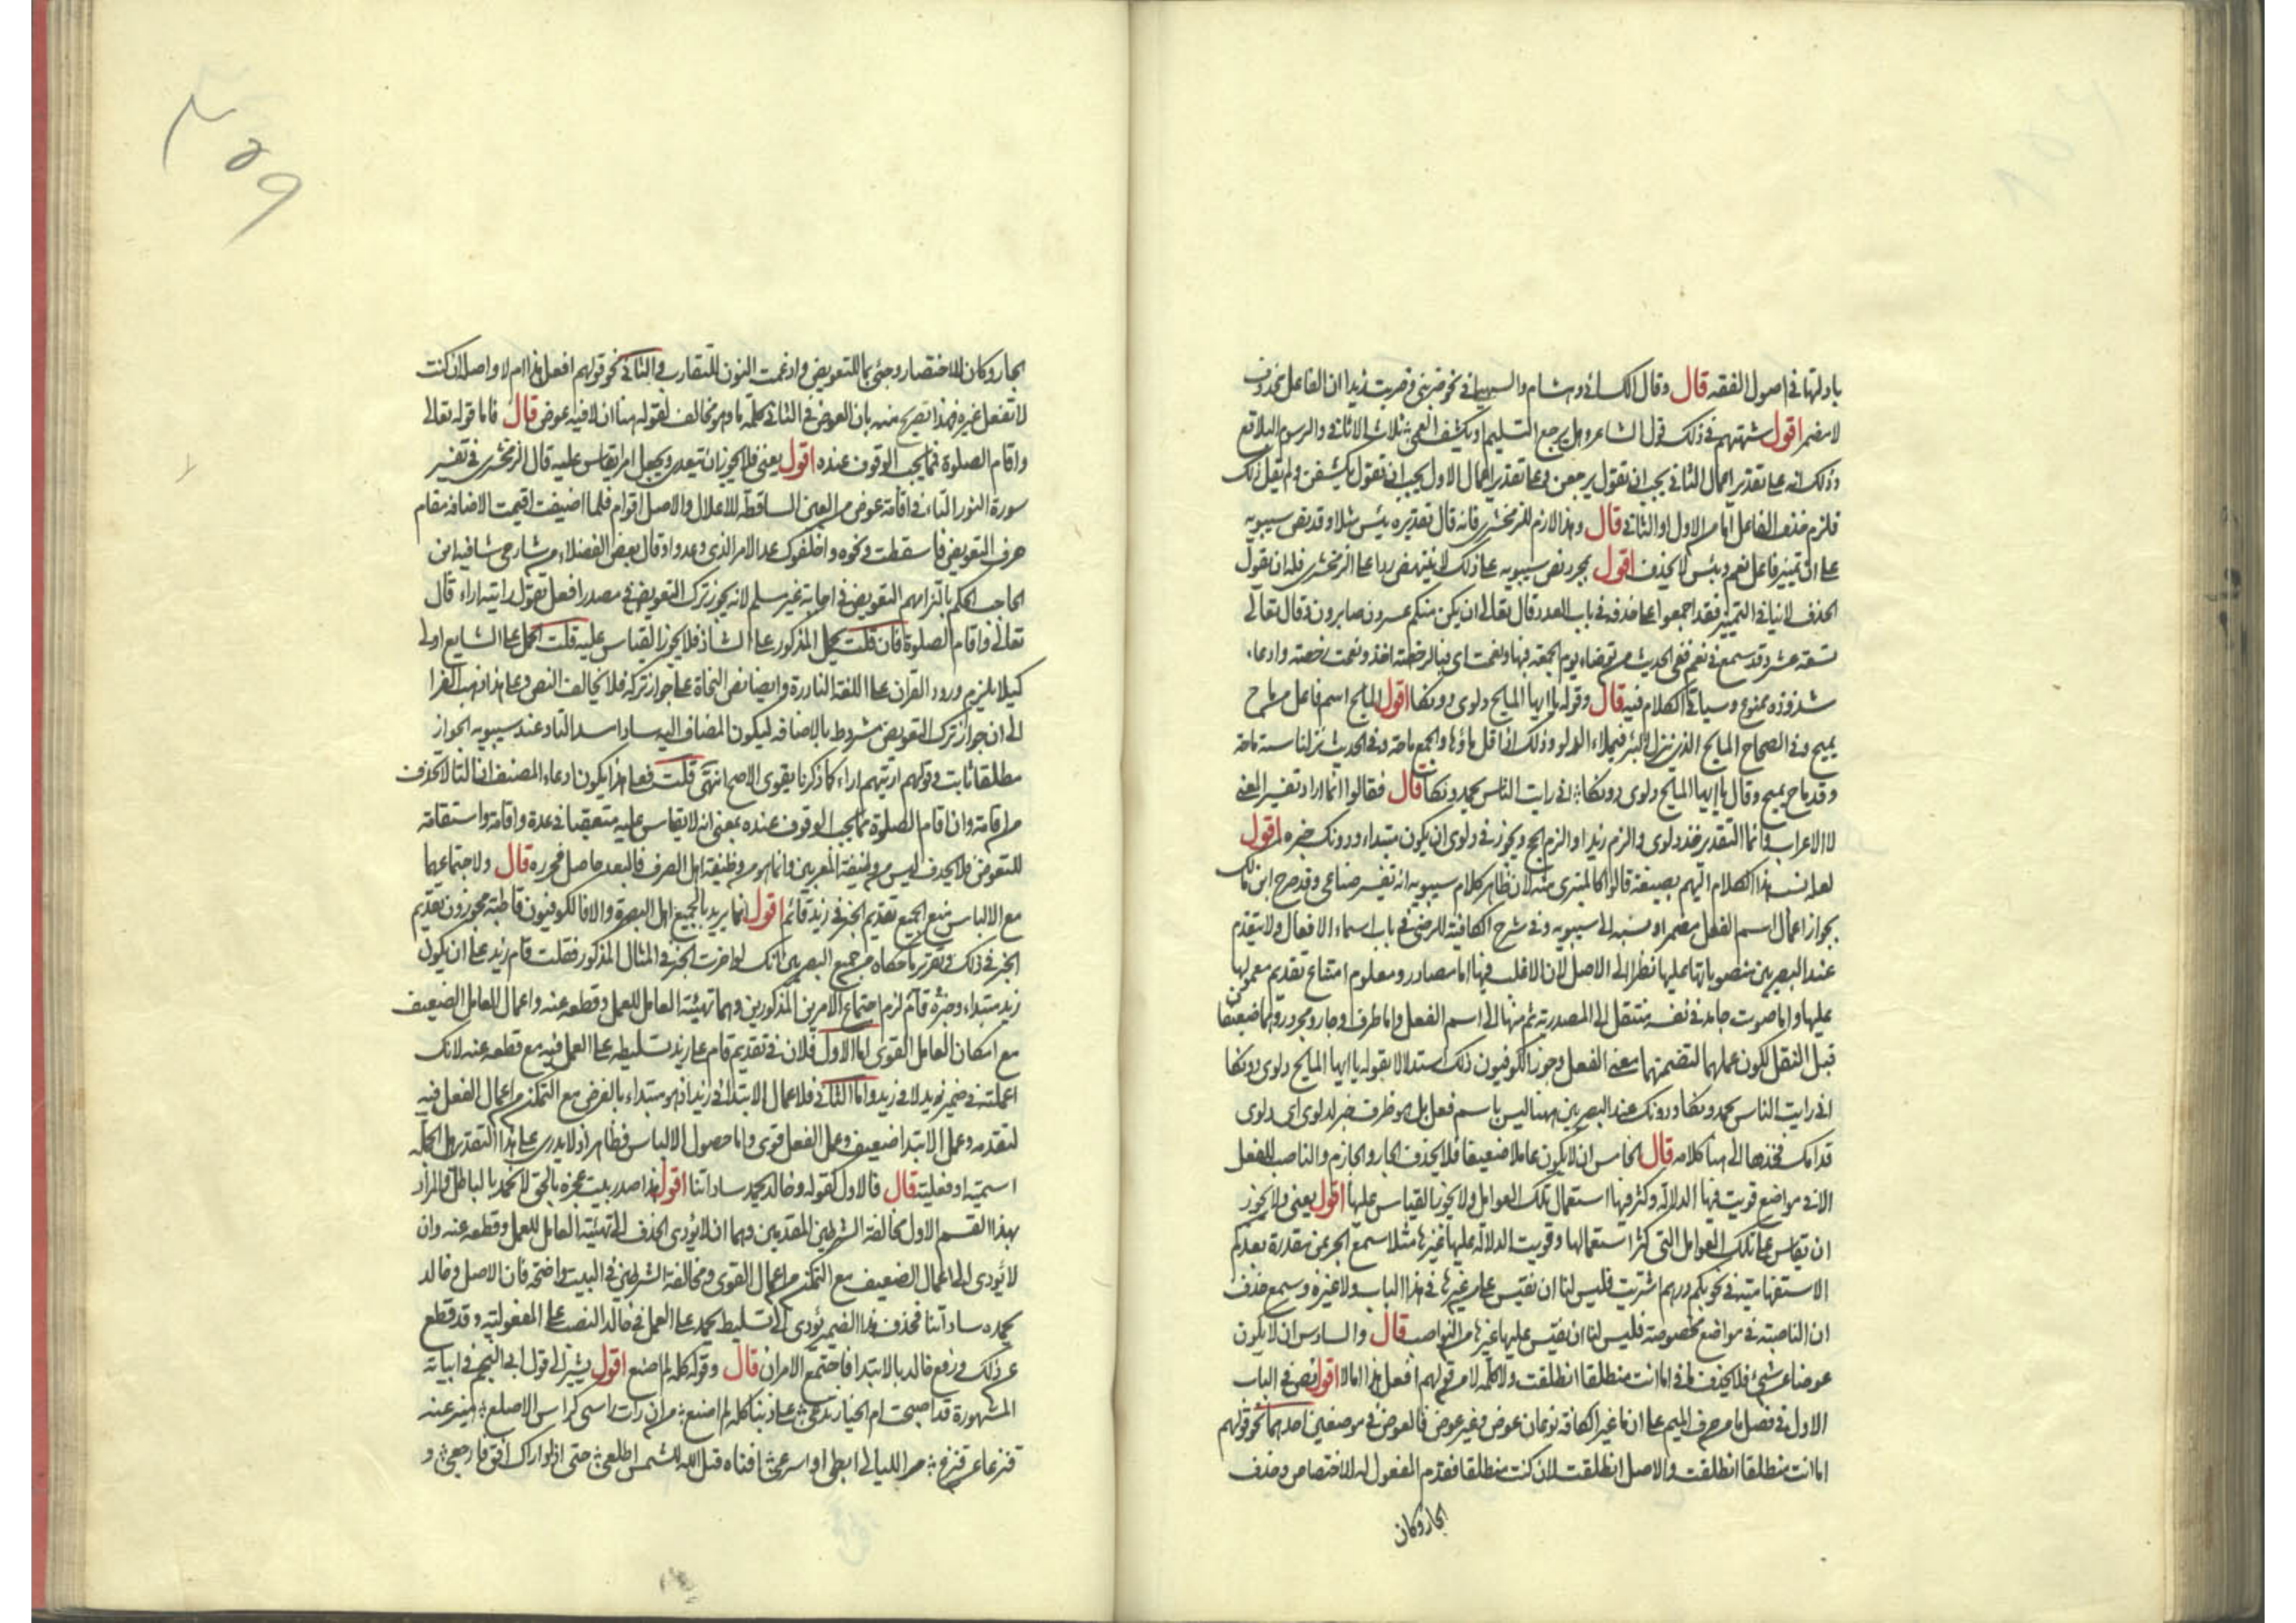 بادلتها في اصول الفقه قال وقال الكسائي وهشام والسهيلي في نحو ضربني وضربت زيدا ان الفاعل محذوف
لا مضمر اقول شبهتهم في ذلك قول الشاعر وهل يرجع التسليم او يكشف العمى ثلاث الاثافي والرسوم البلاقع
وذلك انه على تقدير اعمال الثاني يجب ان تقول يرجعن وعلى تقدير اعمال الاول يجب ان تقول يكشفن ولم يقل ذلك
فلزم حذف الفاعل اما من الاول او الثاني قال وهذا لازم للزمخشري فانه قال تقديره بئس مثلا وقد نص سيبويه
على ان تمييز فاعل نعم وبئس لا يحذف اقول مجرد نص سيبويه على ذلك لا ينتهض ردا على الزمخشري فله ان يقول
الحذف لا ينافي التمييز فقد اجمعوا على حذفه في باب العدد قال تعالى ان يكن منكم عشرون صابرون وقال تعالى
تسعة عشر وقد سمع في نعم ففي الحديث من توضاء يوم الجمعة فبها ونعمت اي فبالرخصة اخذ ونعمت رخصة وادعاء
شذوذه ممنوع وسياتي الكلام فيه قال وقوله يا ايها المايح دلوي دونكا اقول المايح اسم فاعل من ماح
يميح وفي الصحاح المايح الذي ينزل البئر فيملاء الدلو وذلك اذا قل ماؤها والجمع ماحة وفي الحديث نزلنا ستة ماحة
وقد ماح يميح وقال يا ايها المايح دلوي دونكا اني رايت الناس يحمدونكا قال فقالوا انما اراد تفسير المعنى
لا الاعراب وانما التقدير خذ دلوي والزم زيدا او الزم الحج ويجوز في دلوي ان يكون مبتداء ودونك خبره اقول
لعل نسب هذا الكلام اليهم بصيغة قالوا كالمتبري منه لان ظاهر كلام سيبويه انه تفسير صناعي وقد صرح ابن مالك
بجواز اعمال اسم الفعل مضمرا ونسبه الى سيبويه وفي شرح الكافية للرضي في باب اسماء الافعال ولا يتقدم
عند البصريين منصوباتها عليها نظرا الى الاصل لان الاغلب فيها اما مصادر ومعلوم امتناع تقديم معمولها
عليها واما صوت جامد في نفسه منتقل الى المصدرية ثم منها الى اسم الفعل واما ظرف وجار ومجرور وهما ضعيفان
قبل النقل لكون عملهما لتضمنهما معنى الفعل وجوز الكوفيون ذلك استدلالا بقوله يا ايها المايح دلوي دونكا
اني رايت الناس يحمدونكا ودونك عند البصريين ههنا ليس باسم فعل بل هو ظرف خبر لدلوي اي دلوي
قدامك فخذها الى هنا كلامه قال الخامس ان لا يكون عاملا ضعيفا فلا يحذف الجار والجازم والناصب للفعل
الا في مواضع قويت فيها الدلالة وكثر فيها استعمال تلك العوامل ولا يجوز القياس عليها اقول يعني ولا يجوز
ان يقاس على تلك العوامل التي كثر استعمالها وقويت الدلالة عليها غيرها مثلا سمع الجر بمن مقدرة بعد كم
الاستفهامية في نحو بكم درهم اشتريت فليس لنا ان نقيس على من غيرها في هذا الباب ولا غيره وسمع حذف
ان الناصبة في مواضع مخصوصة فليس لنا ان نقيس عليها غيرها من النواصب قال والسادس ان لا يكون
عوضا عن شيء فلا يحذف ما في اما انت منطلقا انطلقت ولا كلمة لا من قولهم افعل هذا اما لا اقول نص في الباب
الاول في فصل ما من حرف الميم على ان ما غير الكافة نوعان عوض وغير عوض فالعوض في موضعين احدهما نحو قولهم
اما انت منطلقا انطلقت والاصل انطلقت لان كنت منطلقا فقدم المفعول له للاختصاص وحذف
الجار وكان
الجار وكان للاختصار وجئ بما للتعويض وادغمت النون للتقارب والثاني نحو قولهم افعل هذا اما لا واصله ان كنت
لا تفعل غيره فهذا تصريح منه بان العوض في الثاني كلمة ما وهو مخالف لقوله هنا ان لا فيه عوض قال فاما قوله تعالى
واقام الصلوة فمما يجب الوقوف عنده اقول يعني فلا يجوز ان يتعدى ويجعل امرا يقاس عليه قال الزمخشري في تفسير
سورة النور التاء في اقامة عوض من العين الساقطة للاعلال والاصل اقوام فلما اضيفت اقيمت الاضافة مقام
حرف التعويض فاسقطت ونحوه واخلفوك عد الامر الذي وعدوا وقال بعض الفضلاء من شارحي شافية ابن
الحاجب الحكم بالتزامهم التعويض في اجابة غير مسلم لانه يجوز ترك التعويض في مصدر افعل تقول اريته اراء قال
تعالى واقام الصلوة فان قلت يحمل المذكور على الشاذ فلا يجوز القياس عليه قلت الحمل على الشايع اولى
كيلا يلزم ورود القران على اللغة النادرة وايضا نص النحاة على جواز تركه فلا يخالف النص وعلى هذا ذهب الفرا
الى ان جواز ترك التعويض مشروط بالاضافة ليكون المضاف اليه سادا مسد التاء وعند سيبويه الجواز
مطلقا ثابت وقولهم اريتهم اراء كما ذكرنا يقوى الاصح انتهى قلت فعلى هذا يكون ادعاء المصنف ان التا لا تحذف
من اقامة وان اقام الصلوة مما يجب الوقوف عنده بمعنى انه لا يقاس عليه متعقبا في عدة واقامة واستقامة
للتعويض فلا يحذف ليس من وظيفة المعربين وانما هو من وظيفة اهل الصرف فالبعد حاصل فحرره قال ولاجتماعهما
مع الالباس منع الجميع تقديم الخبر في زيد قائم اقول انما يريد بالجميع اهل البصرة والا فالكوفيون قاطبة مجوزون تقديم
الخبر في ذلك وتقرير ما حكاه من جميع البصريين انك لو اخرت الخبر في المثال المذكور فقلت قام زيد على ان يكون
زيد مبتداء وخبره قائم لزم اجتماع الامرين المذكورين وهما تهيئة العامل للعمل وقطعه عنه واعمال العامل الضعيف
مع امكان العامل القوي اما الاول فلان في تقديم قام على زيد تسليطه على العمل فيه مع قطعه عنه لانك
اعملته في ضمير زيد لا في زيد واما الثاني فلاعمال الابتدا في زيد اذ هو مبتداء بالفرض مع التمكن من اعمال الفعل فيه
لتقدمه وعمل الابتدا ضعيف وعمل الفعل قوي واما حصول الالباس فظاهر اذ لا يدرى على هذا التقدير هل الجملة
اسمية او فعلية قال فالاول كقوله وخالد يحمد ساداتنا اقول هذا صدر بيت عجزه بالحق لا تحمد بالباطل والمراد
بهذا القسم الاول مخالفة الشرطين المتقدمين وهما ان لا يؤدي الحذف الى تهيئة العامل للعمل وقطعه عنه وان
لا يؤدي الى اعمال الضعيف مع التمكن من اعمال القوي ومخالفة الشرطين في البيت واضحة فان الاصل وخالد
يحمده ساداتنا فحذف هذا الضمير يؤدي الى تسليط يحمد على العمل في خالد النصب على المفعولية وقد قطع
عن ذلك ورفع خالد بالابتدا فاجتمع الامران قال وقوله كله لم اصنع اقول يشير الى قول ابي النجم في ابياته
المشهورة قد اصبحت ام الخيار تدعي علي ذنبا كله لم اصنع من ان رات راسي كراس الاصلع ميز عنه
قنزعا عن قنزع مر الليالي ابطئ او اسرعي افناه قيل الله للشمس اطلعي حتى اذا واراك افق فارجعي و
٣٥٩